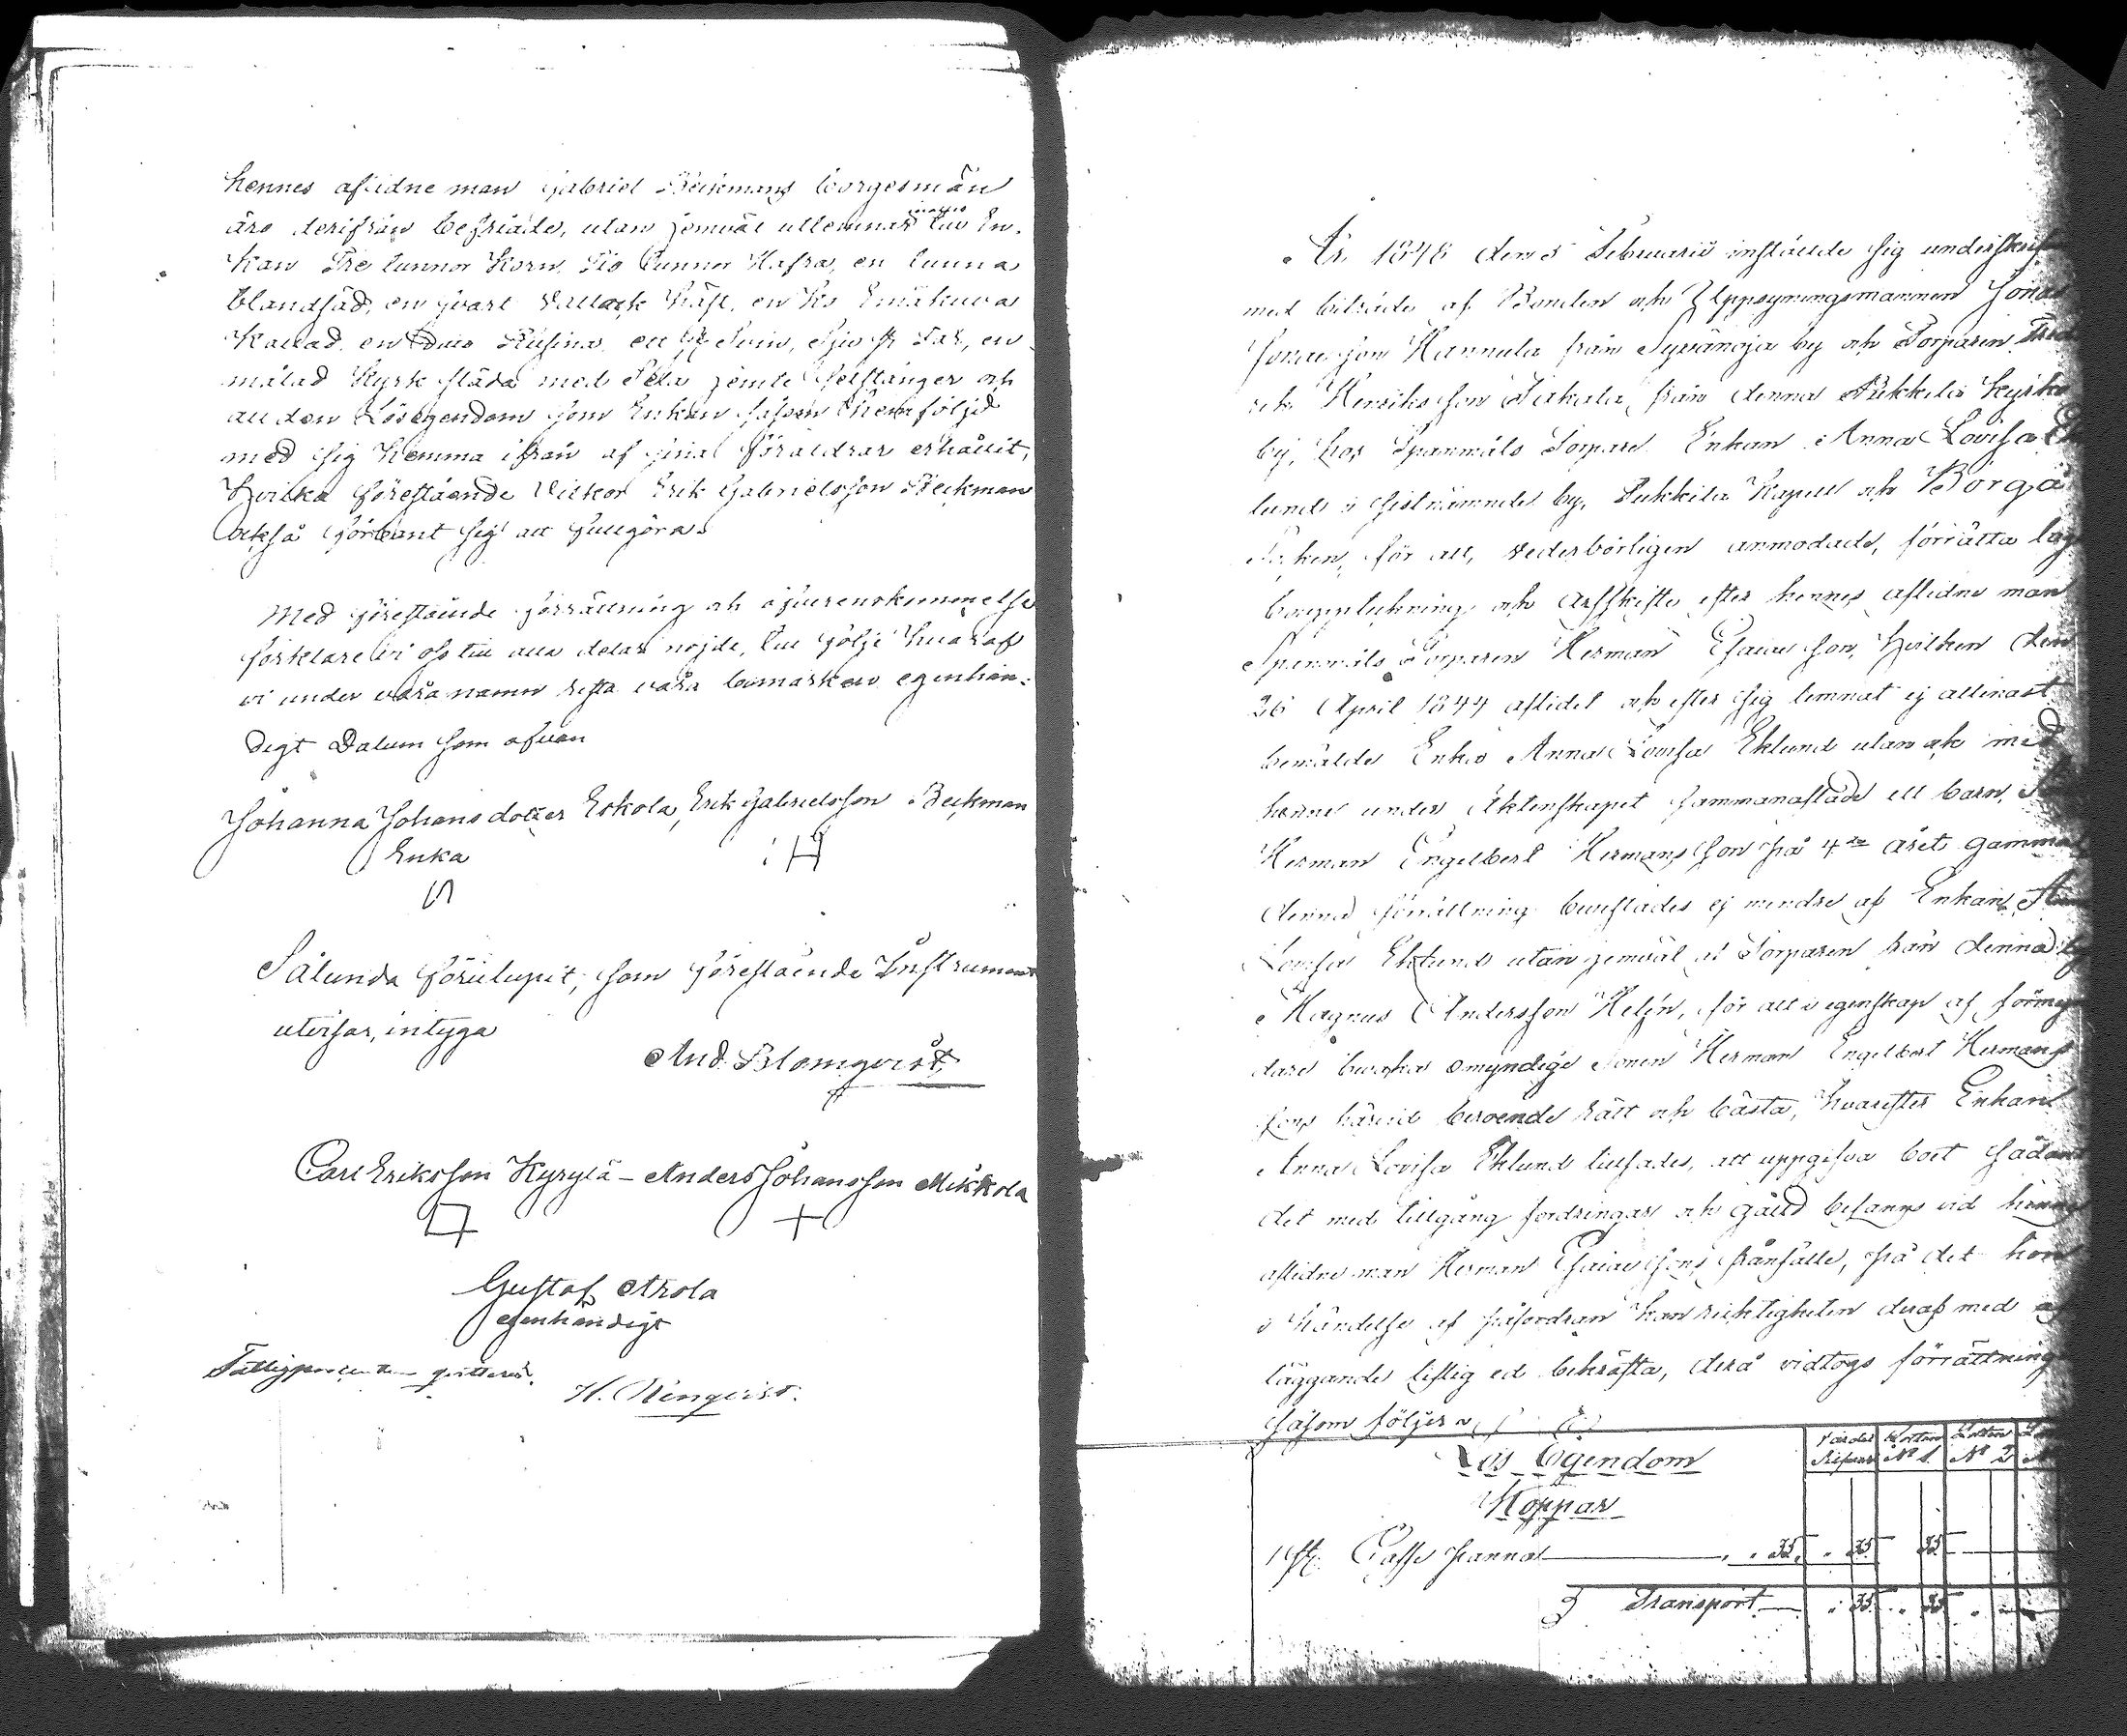 hennes aflidne man Gabriel Beckmans borgesmän
äro derifrån befriade, utan jemväl utlemnar till En-
kan Tre tunnor Korn, Tio Tunnor Hafra, en tunna
blandsäd, en svart Vallack häst, en Ko Emäkuva
Kallad, en Dito Rusina, ett st Svin, Sju st Får, en
målad Kyrk släda med Sela jemte Selstänger och
all den Lösegendom som Enkan såsom Hemföljd
med sig hemma ifrån af sina föräldrar erhållit,
Hvilka förestående Vilkor Erik Gabrielsson Beckman
också förbant sig att fullgöra.
Med förestående förrättning och öfverenskommelse
förklare vi oss till alla delar nöjde, till följe hvaraf
vi under våra namn rista våra bomärken egenhän-
digt Datum som ofvan
Johanna Johansdotter Eskola, Erik Gabrielsson Beckman
Enka
Sålunda förelupit, som förestående Instrument
utvisar, intyga
And. Blomqvist
Carl Eriksson Kyrylä - Anders Johansson Mikkola
Gustaf Arola
egenhändigt
Fattigprocenten qvitteras.
H. Ringqvist.
År 1848 den 5 Februarii instälde sig underskrifne
med biträde af Bonden och Uppsyningsmannen Jonas
Jonasson Hannula från Syvänoja by och Torparen
Henriksson från denna Pukkila Kyrko
by, hos Spanmåls Torpare Enkan Anna Lovisa Ek
lund i sistnämnde by, Pukkila Kapell och Borgå
Socken, för att, vederbörligen anmodade, förrätta laga
bouppteckning och Arfskifte efter hennes aflidne man
Spanmåls Torparen Herman Esaiasson, Hvilken den
26 April 1844 aflidit och efter sig lemnat ej allenast
bemälde Enka Anna Lovisa Eklund utan ock med
henne under Äktenskapet sammanaflade ett barn,
Herman Engelbert Hermansson på 4de året gammal
denna förrättning bevistades ej mindre af Enkan Anna
Lovisa Eklund utan jemväl af Torparen från denna by
Magnus Andersson Helén, för att i egenskap af förmyn
dare bevaka omyndige Sonen Herman Engelbert Hermans
sons härvid beroende rätt och bästa, hvarefter Enkan
Anna Lovisa Eklund tillsades, att uppgifva boet sådant
det med tillgång fordringar och gäld befanns vid hennes
aflidne man Herman Esaiassons frånfälle, på det hon
i händelse af påfordran kan riktigheten deraf med af
läggande liflig ed bekräfta, derå vidtogs förrättningen
såsom följer
Lös Egendom
Koppar
Värdet Silfver | Lotten No 1 | Lotten No 2
1 st. Caffe panna " 35. " 35 35
Transport " 35 " 35 "